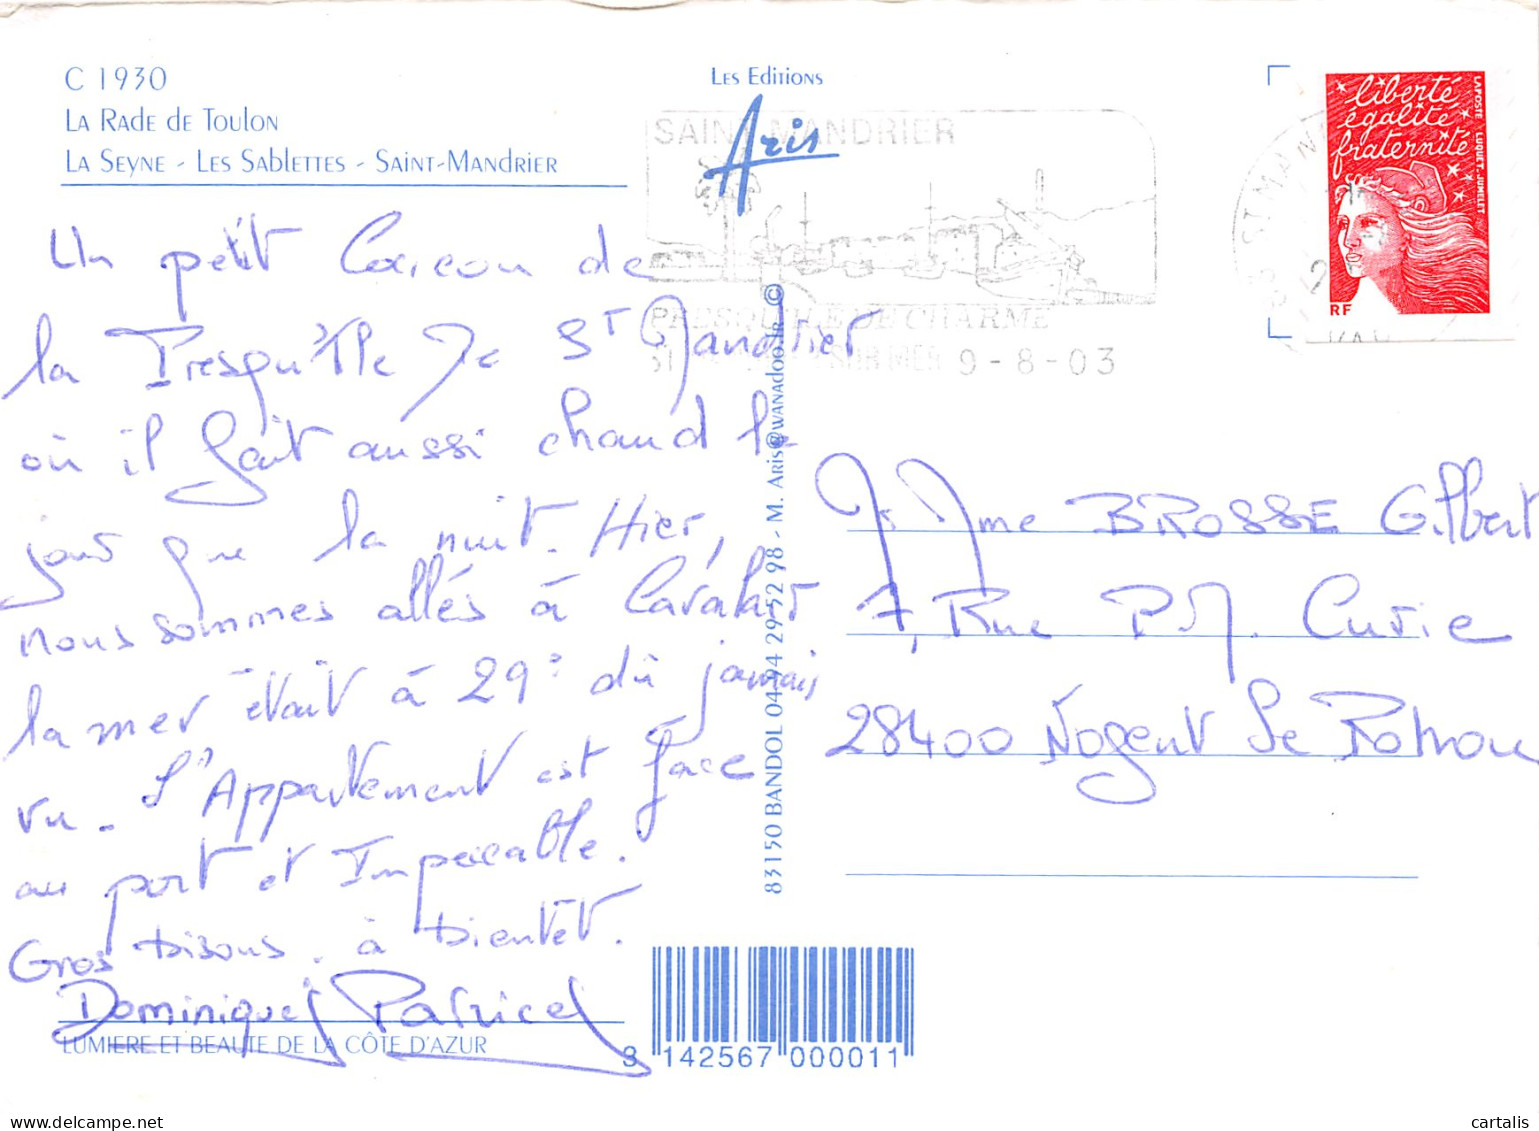 C 1930
La Rade de Toulon
La Seyne - Les Sablettes - Saint-Mandrier
Les Editions
Aris
SAINT MANDRIER
PRESQU'ILE DE CHARME
SUR MER 9-8-03
ST MAN
liberté
égalité
fraternité
LA POSTE LUQUET-JUMELET
RF
VAR
Un petit Coucou de
la Presqu'île de St Mandrier
où il fait aussi chaud le
jour que la nuit. Hier,
nous sommes allés à Cavalaire
la mer était à 29° du jamais
vu. L'Appartement est face
au port et Impeccable.
Gros bisous. à bientôt.
Dominique Patrice
Mme BROSSE Gilbert
7, Rue P.M. Curie
28400 Nogent Le Rotrou
83150 BANDOL 04 94 29 52 98 - M. Aris@wanadoo.fr ©
LUMIERE ET BEAUTE DE LA CÔTE D'AZUR
3 142567 000011
cartalis